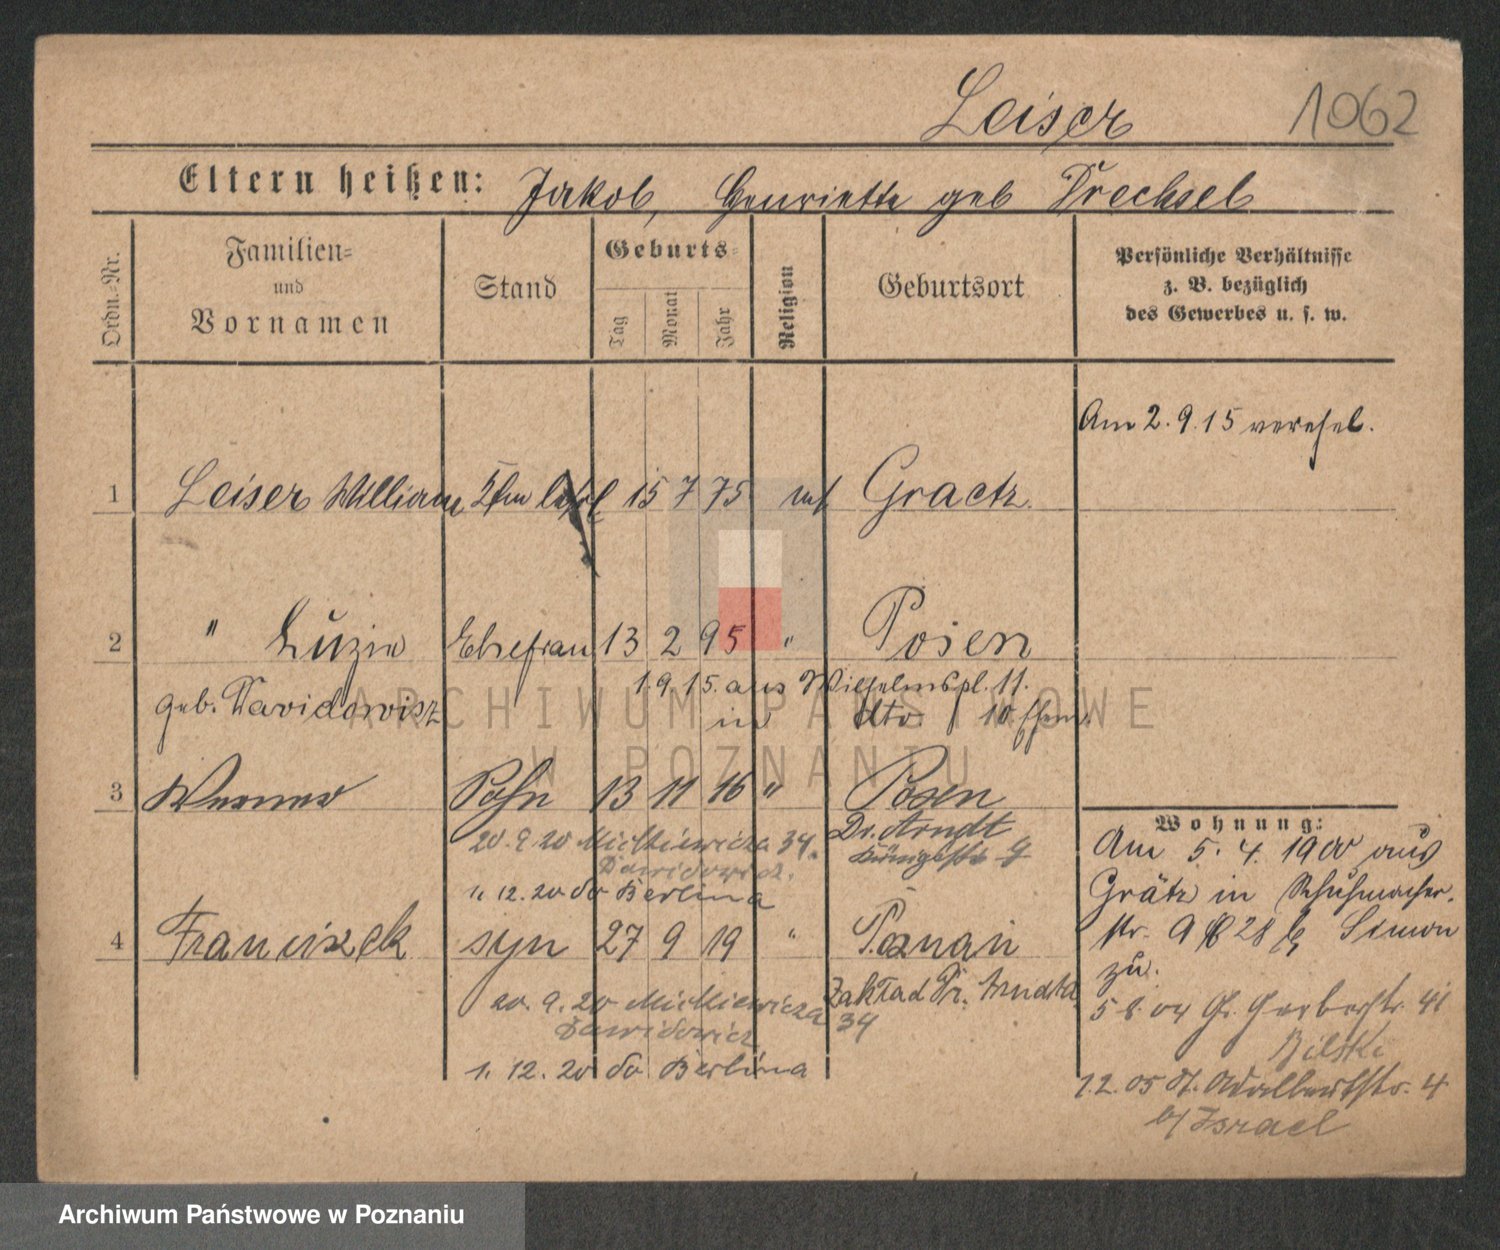 Leiser 1062
Eltern heißen: Jakob, Henriette geb Drechsel
Ordn.=Nr. Familien= und Vornamen Stand Geburts= Tag Monat Jahr Religion Geburtsort Persönliche Verhältnisse z. B. bezüglich des Gewerbes u. s. w.
Am 2. 9. 15 verehel.
1 Leiser William Kfm 15 7 75 mos Graetz
2 " Luzie Ehefrau 13 2 95 " Posen
geb. Davidowicz 1. 9. 15. aus Wilhelmspl. 11.
in dto. 10
3 Werner Sohn 13 11 16 " Posen
20. 9. 20 Mickiewicza 34. Dr. Arndt
Dawidowicz. Königsstr.
1. 12. 20 do Berlina
4 Franciszek syn 27 9 19 " Poznań
20. 9. 20 Mickiewicza 34 Zakład Dr. Arndta
Dawidowicz
1. 12. 20 do Berlina
Wohnung:
Am 5. 4. 1900 aus
Grätz in Schuhmacher-
str. 9 28 Simon
zu.
5 8. 04 Gr. Gerberstr. 41
Bilski
1. 2. 05 St. Adalbertstr. 4
b/ Israel
ARCHIWUM PAŃSTWOWE
W POZNANIU
Archiwum Państwowe w Poznaniu